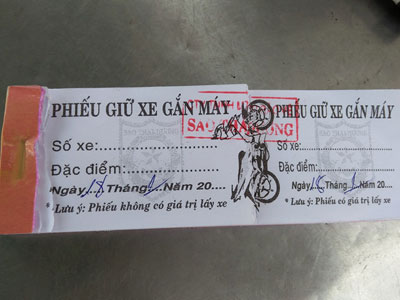 PHIẾU GIỮ XE GẮN MÁY
Số xe:..............................
Đặc điểm:.........................
Ngày 18 Tháng 1 Năm 20....
* Lưu ý: Phiếu không có giá trị lấy xe
SAO
PHIẾU GIỮ XE GẮN MÁY
Số xe:..............................
Đặc điểm:.........................
Ngày 18 Tháng 1 Năm 20....
* Lưu ý: Phiếu không có giá trị lấy xe